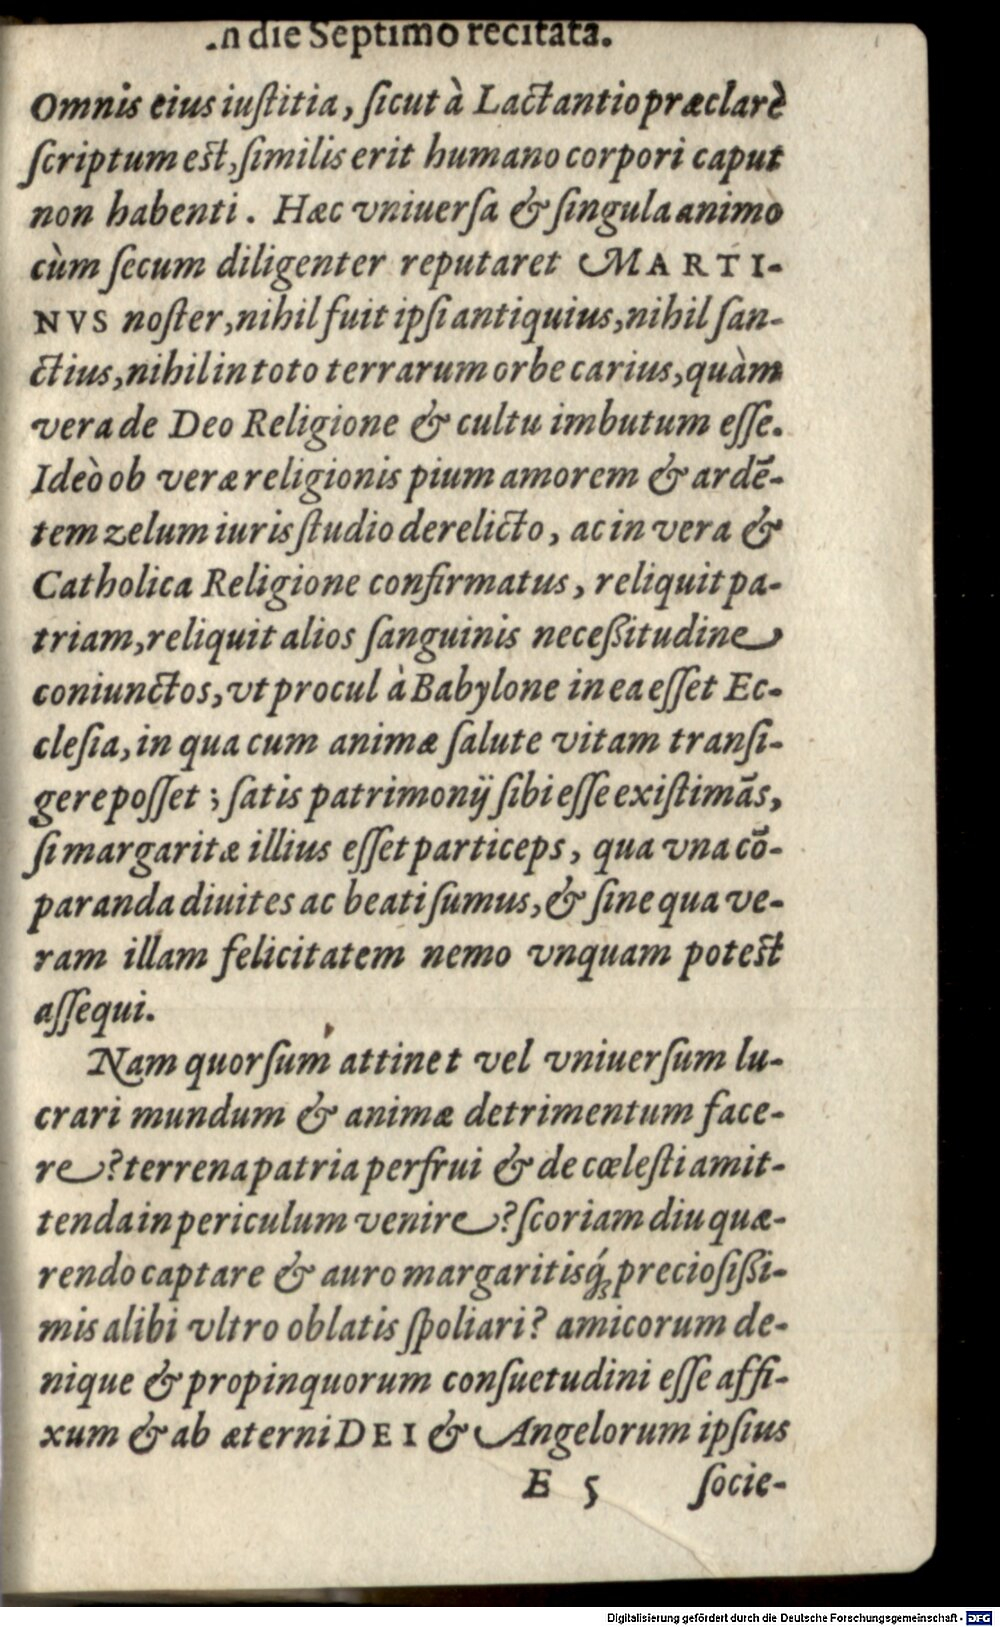 n die Septimo recitata.
Omnis eius iuſtitia, ſicut à Lactantio præclarè
ſcriptum eſt, ſimilis erit humano corpori caput
non habenti. Hæc vniuerſa & ſingula animo
cùm ſecum diligenter reputaret MARTI-
NVS noſter, nihil fuit ipſi antiquius, nihil ſan-
ctius, nihil in toto terrarum orbe carius, quàm
vera de Deo Religione & cultu imbutum eſſe.
Ideò ob veræ religionis pium amorem & ardē-
tem zelum iuris ſtudio derelicto, ac in vera &
Catholica Religione confirmatus, reliquit pa-
triam, reliquit alios ſanguinis neceßitudine
coniunctos, vt procul à Babylone in ea eſſet Ec-
cleſia, in qua cum animæ ſalute vitam tranſi-
gere poſſet; ſatis patrimonij ſibi eſſe exiſtimãs,
ſi margaritæ illius eſſet particeps, qua vna cō-
paranda diuites ac beati ſumus, & ſine qua ve-
ram illam felicitatem nemo vnquam poteſt
aſſequi.
Nam quorſum attinet vel vniuerſum lu-
crari mundum & animæ detrimentum face-
re? terrena patria perfrui & de cœleſti amit-
tenda in periculum venire? ſcoriam diu quæ-
rendo captare & auro margaritisq́; precioſißi-
mis alibi vltro oblatis ſpoliari? amicorum de-
nique & propinquorum conſuetudini eſſe affi-
xum & ab æterni DEI & Angelorum ipſius
E 5 ſocie-
Digitalisierung gefördert durch die Deutsche Forschungsgemeinschaft - DFG